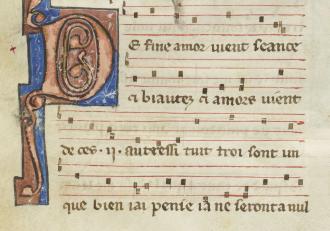 De fine amor vient seance
et biautez ci amors vient
de ces · ii · autressi tuit troi sont un
que bien i ai pense ia ne seront a nul